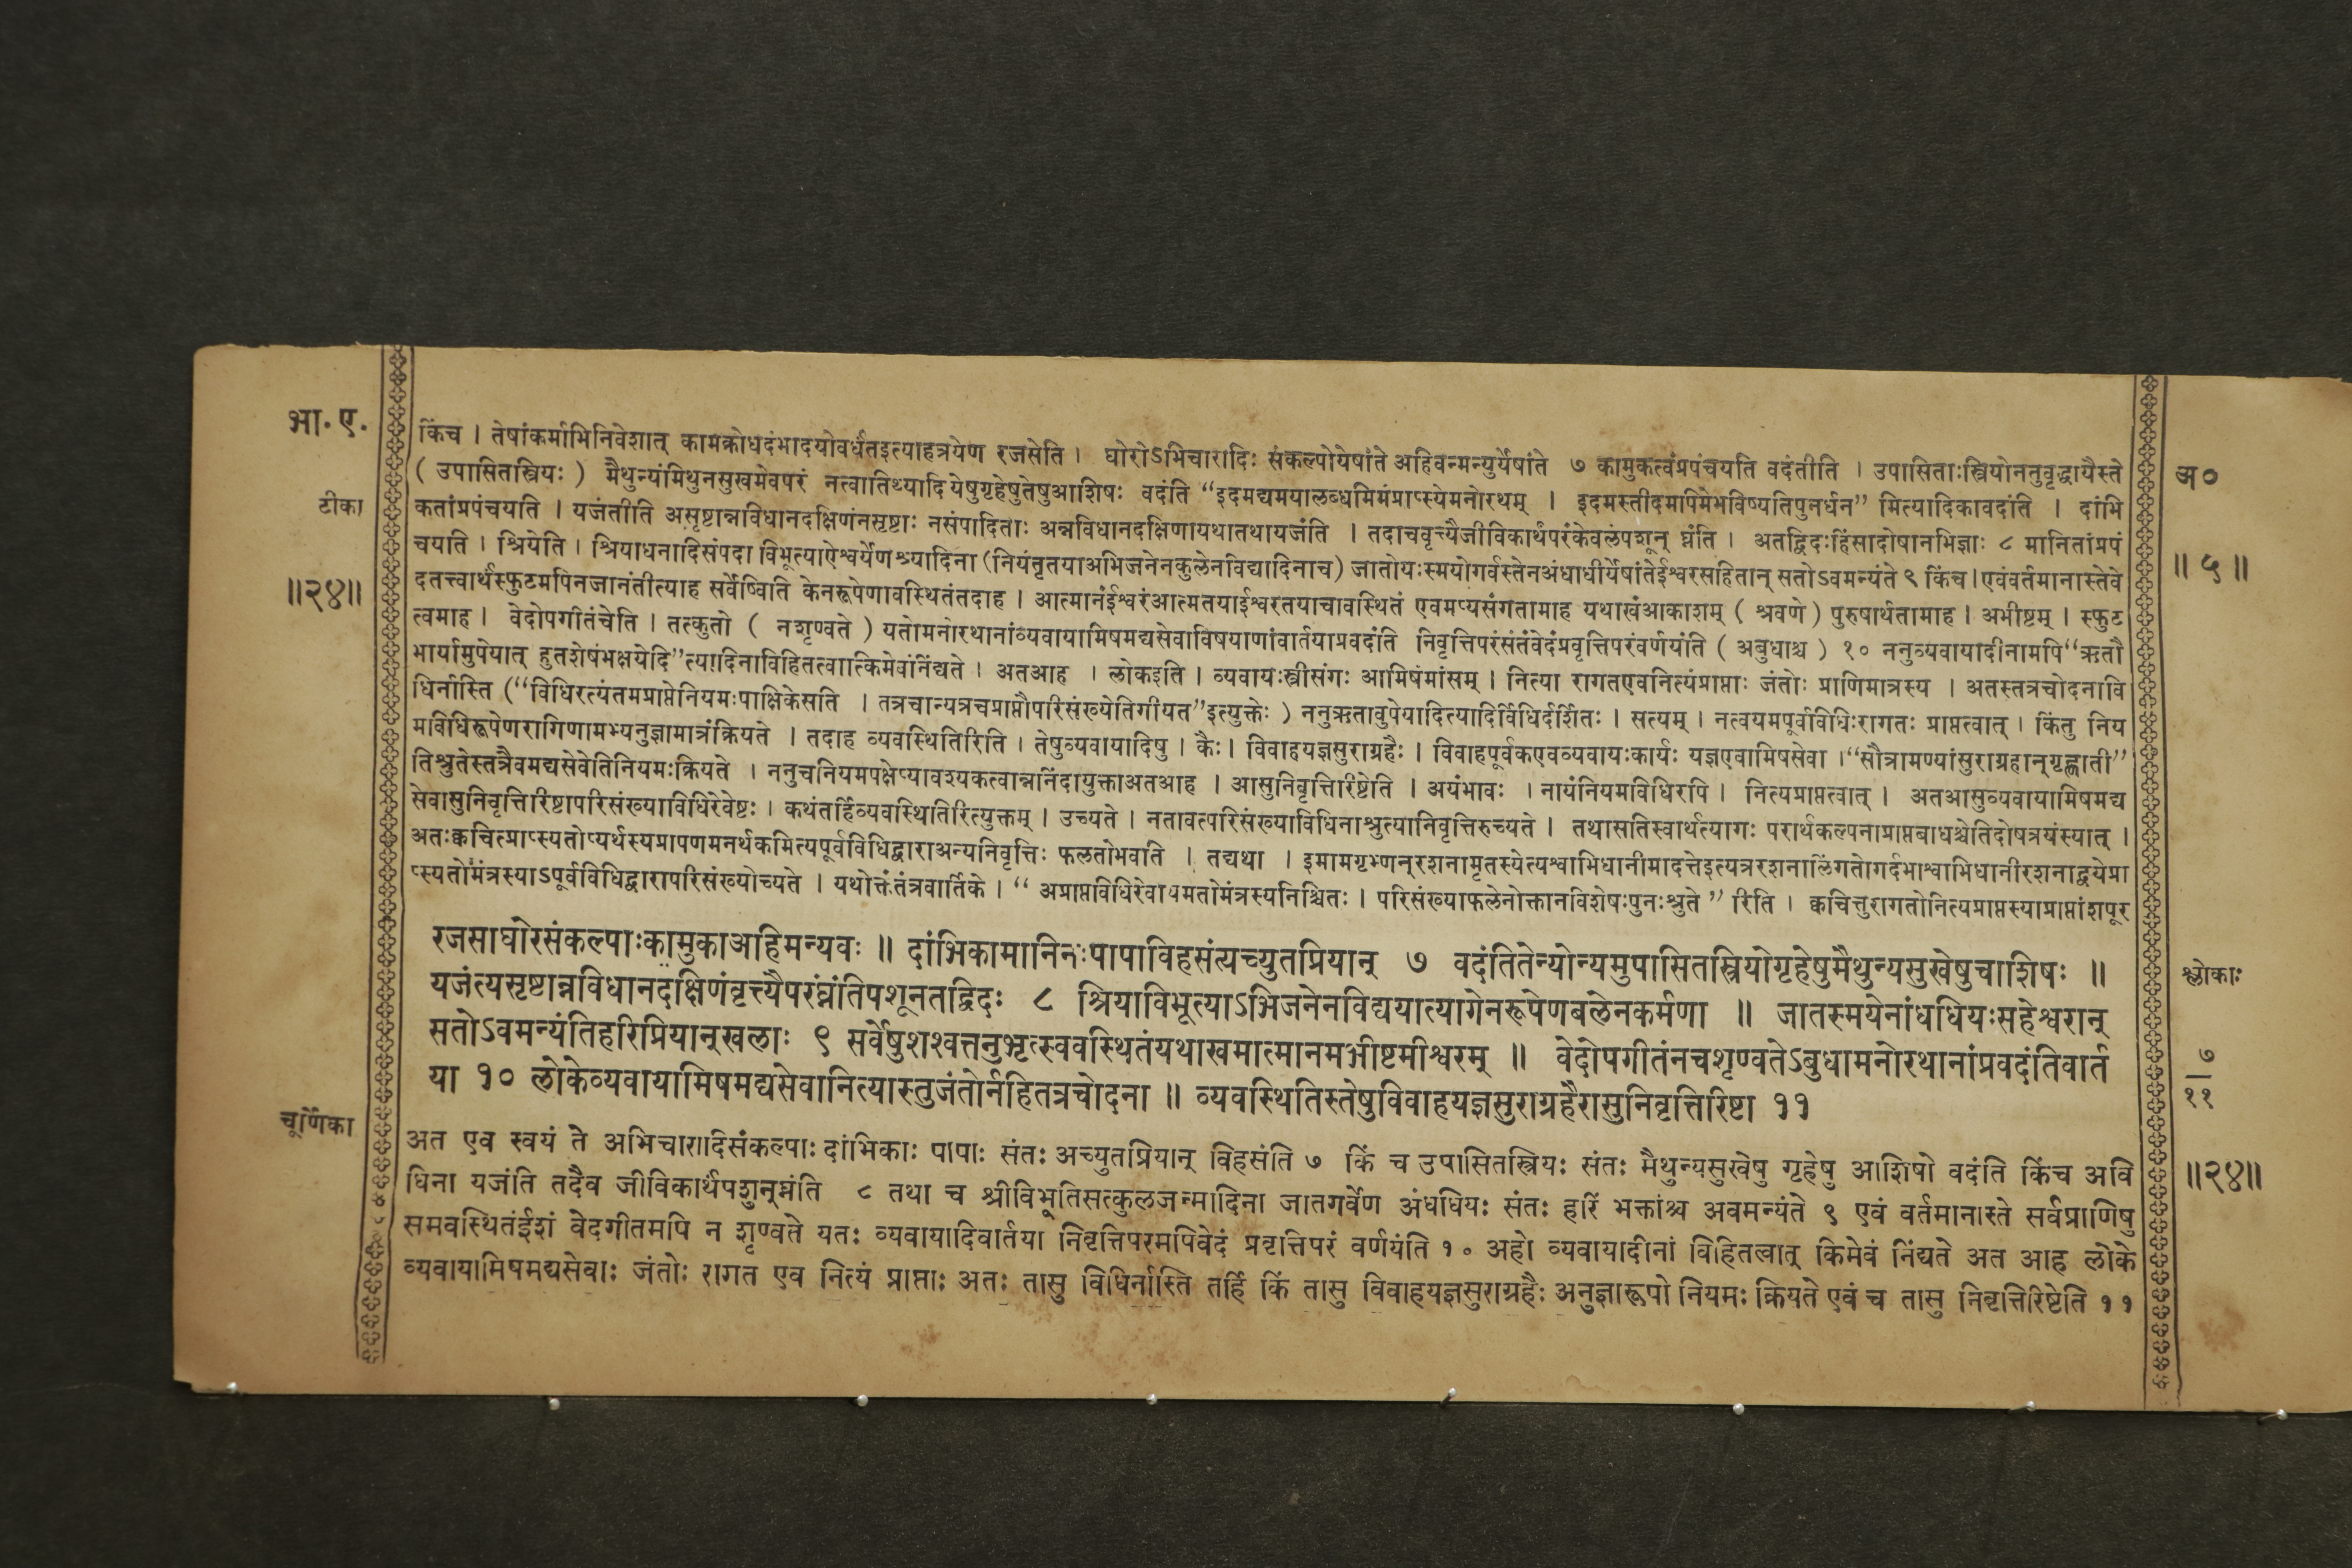 भा. ए.
टीका
॥२४॥
किंच । तेषांकर्माभिनिवेशात् कामक्रोधदंभादयोवर्धंतइत्याहत्रयेण रजसेति । घोरोऽभिचारादिः संकल्पोयेषांते अहिवन्मन्युर्येषांते ७ कामुकत्वंप्रपंचयति वदंतीति । उपासिताःस्त्रियोननतुवृद्धायैस्ते
( उपासितस्त्रियः ) मैथुन्यंमिथुनसुखमेवपरं नत्वातिथ्यादि येषुगृहेषुतेषुआशिषः वदंति “इदमद्यमयालब्धमिमंप्राप्स्येमनोरथम् । इदमस्तीदमपिमेभविष्यतिपुनर्धन” मित्यादिकावदंति । दांभि
कतांप्रपंचयति । यजंतीति असृष्टान्नविधानदक्षिणंनसृष्टाः नसंपादिताः अन्नविधानदक्षिणायथातथायजंति । तदाचवृत्त्यैजीविकार्थंपरंकेवलंपशून् घ्नंति । अतद्विदःहिंसादोषानभिज्ञाः ८ मानितांप्रपं
चयति । श्रियेति । श्रियाधनादिसंपदा विभूत्याऐश्वर्येणश्र्यादिना (नियंतृतयाअभिजनेनकुलेनविद्यादिनाच) जातोयःस्मयोगर्वस्तेनअंधाधीर्येषांतेईश्वरसहितान् सतोऽवमन्यंते ९ किंच।एवंवर्तमानास्तेवे
दतत्त्वार्थंस्फुटमपिनजानंतीत्याह सर्वेष्विति केनरूपेणावस्थितंतदाह । आत्मानंईश्वरंआत्मतयाईश्वरतयाचावस्थितं एवमप्यसंगतामाह यथाखंआकाशम् ( श्रवणे ) पुरुषार्थतामाह । अभीष्टम् । स्फुट
त्वमाह । वेदोपगीतंचेति । तत्कुतो ( नशृण्वते ) यतोमनोरथानांव्यवायामिषमद्यसेवाविषयाणांवार्तयाप्रवदंति निवृत्तिपरंसंतंवेदंप्रवृत्तिपरंवर्णयंति ( अबुधाश्च ) १० ननुव्यवायादीनामपि“ऋतौ
भार्यामुपेयात् हुतशेषंभक्षयेदि”त्यादिनाविहितत्वात्किमेवंनिंद्यते । अतआह । लोकइति । व्यवायःस्त्रीसंगः आमिषंमांसम् । नित्या रागतएवनित्यंप्राप्ताः जंतोः प्राणिमात्रस्य । अतस्तत्रचोदनावि
धिर्नास्ति (“विधिरत्यंतमप्राप्तेनियमःपाक्षिकेसति । तत्रचान्यत्रचप्राप्तौपरिसंख्येतिगीयत”इत्युक्तेः ) ननुऋतावुपेयादित्यादिर्विधिर्दर्शितः । सत्यम् । नत्वयमपूर्वविधिःरागतः प्राप्तत्वात् । किंतु निय
मविधिरूपेणरागिणामभ्यनुज्ञामात्रंक्रियते । तदाह व्यवस्थितिरिति । तेषुव्यवायादिषु । कैः। विवाहयज्ञसुराग्रहैः । विवाहपूर्वकएवव्यवायःकार्यः यज्ञएवामिषसेवा ।“सौत्रामण्यांसुराग्रहान्‌गृह्णाती”
तिश्रुतेस्तत्रैवमद्यसेवेतिनियमःक्रियते । ननुचनियमपक्षेप्यावश्यकत्वान्ननिंदायुक्ताअतआह । आसुनिवृत्तिरिष्टेति । अयंभावः । नायंनियमविधिरपि । नित्यप्राप्तत्वात् । अतआसुव्यवायामिषमद्य
सेवासुनिवृत्तिरिष्टापरिसंख्याविधिरेवेष्टः । कथंतर्हिव्यवस्थितिरित्युक्तम् । उच्यते । नतावत्परिसंख्याविधिनाश्रुत्यानिवृत्तिरुच्यते । तथासतिस्वार्थत्यागः परार्थकल्पनाप्राप्तबाधश्चेतिदोषत्रयंस्यात् ।
अतःक्वचित्प्राप्स्यतोप्यर्थस्यप्रापणमनर्थकमित्यपूर्वविधिद्वाराअन्यनिवृत्तिः फलतोभवति । तद्यथा । इमामगृभ्णन्‌रशनामृतस्येत्यश्वाभिधानीमादत्तेइत्यत्ररशनालिंगतोगर्दभाश्वाभिधानीरशनाद्वयेप्रा
प्स्यतोमंत्रस्याऽपूर्वविधिद्वारापरिसंख्योच्यते । यथोक्तंतंत्रवार्तिके । “ अप्राप्तविधिरेवायमतोमंत्रस्यनिश्चितः । परिसंख्याफलेनोक्तानविशेषःपुनःश्रुते ” रिति । क्वचित्तुरागतोनित्यप्राप्तस्याप्राप्तांशपूर
रजसाघोरसंकल्पाःकामुकाअहिमन्यवः ॥ दांभिकामानिनःपापाविहसंत्यच्युतप्रियान् ७ वदंतितेन्योन्यमुपासितस्त्रियोगृहेषुमैथुन्यसुखेषुचाशिषः ॥
यजंत्यसृष्टान्नविधानदक्षिणंवृत्त्यैपरंघ्नंतिपशूनतद्विदः ८ श्रियाविभूत्याऽभिजनेनविद्ययात्यागेनरूपेणबलेनकर्मणा ॥ जातस्मयेनांधधियःसहेश्वरान्
सतोऽवमन्यंतिहरिप्रियान्‌खलाः ९ सर्वेषुशश्वत्तनुभृत्स्ववस्थितंयथाखमात्मानमभीष्टमीश्वरम् ॥ वेदोपगीतंनचशृण्वतेऽबुधामनोरथानांप्रवदंतिवार्त
या १० लोकेव्यवायामिषमद्यसेवानित्यास्तुजंतोर्नहितत्रचोदना ॥ व्यवस्थितिस्तेषुविवाहयज्ञसुराग्रहैरासुनिवृत्तिरिष्टा ११
चूर्णिका
अत एव स्वयं ते अभिचारादिसंकल्पाः दांभिकाः पापाः संतः अच्युतप्रियान् विहसंति ७ किं च उपासितस्त्रियः संतः मैथुन्यसुखेषु गृहेषु आशिषो वदंति किंच अवि
धिना यजंति तदैव जीविकार्थंपशुन्‌घ्नंति ८ तथा च श्रीविभूतिसत्कुलजन्मादिना जातगर्वेण अंधधियः संतः हरिं भक्तांश्च अवमन्यंते ९ एवं वर्तमानास्ते सर्वप्राणिषु
समवस्थितंईशं वेदगीतमपि न शृण्वते यतः व्यवायादिवार्तया निवृत्तिपरमपिवेदं प्रवृत्तिपरं वर्णयंति १० अहो व्यवायादीनां विहितत्वात् किमेवं निंद्यते अत आह लोके
व्यवायामिषमद्यसेवाः जंतोः रागत एव नित्यं प्राप्ताः अतः तासु विधिर्नास्ति तर्हि किं तासु विवाहयज्ञसुराग्रहैः अनुज्ञारूपो नियमः क्रियते एवं च तासु निवृत्तिरिष्टेति ११
अ०
॥ ५ ॥
श्लोकाः
७
११
॥२४॥